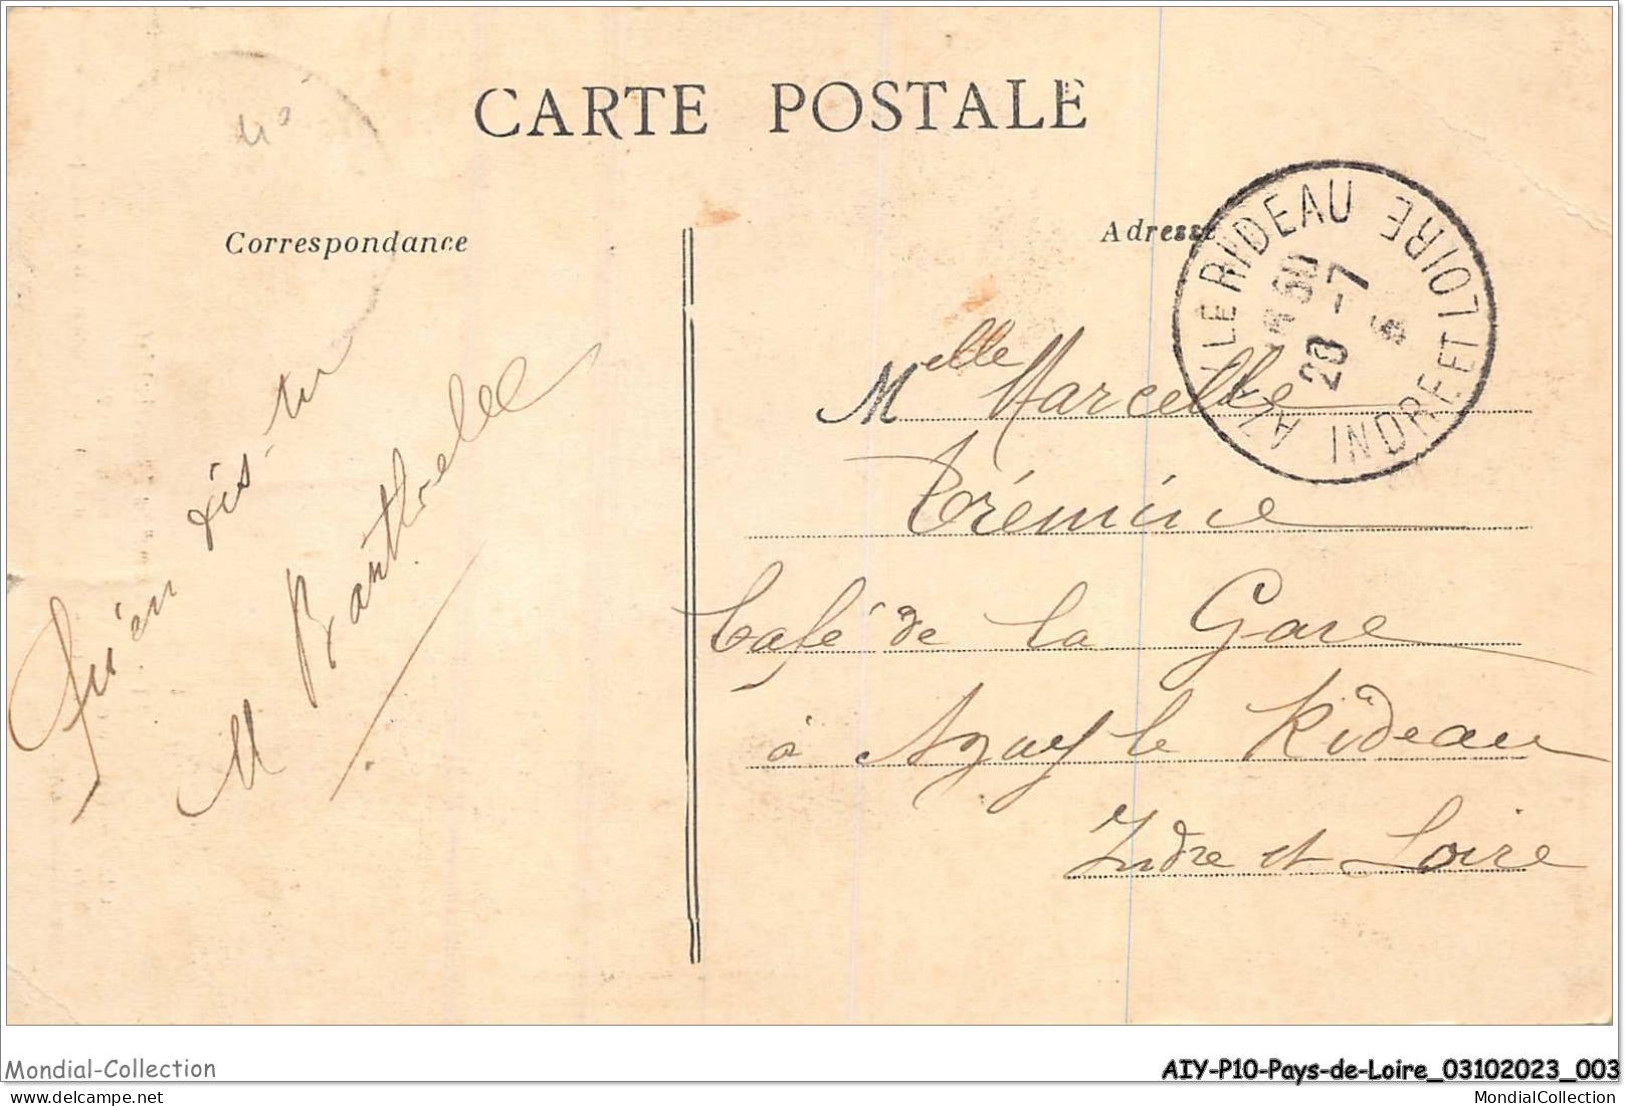 CARTE POSTALE
Correspondance
Adresse
AZAY LE RIDEAU
INDRE ET LOIRE
20 -7
Qu'en dis-tu
M
Melle Marcelle
Trémine
Café de la Gare
à Azay le Rideau
Indre et Loire
Mondial-Collection
AIY-P10-Pays-de-Loire_03102023_003
MondialCollection